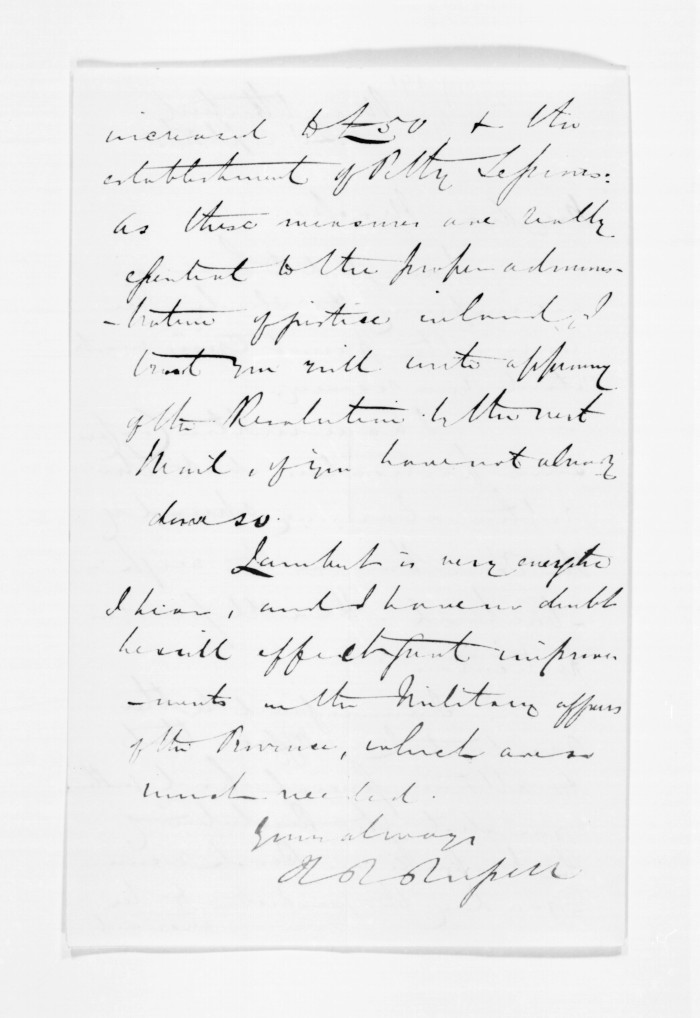 increased to £50 & the
establishment of Petty Sessions:
as these measures are really
essential to the proper adminis-
-tration of justice inland, I
trust you will write approving
of the Resolution by the next
Mail, if you have not already
done so.
Lambert is very energetic
I hear, and I have no doubt
he will effect great improve
-ments in the Military affairs
of the Province, which are so
much needed.
Yours always
H R Russell